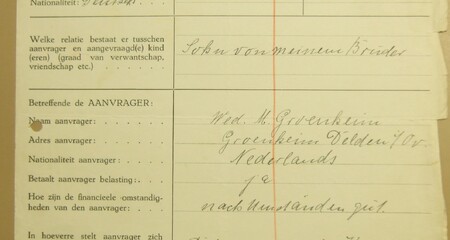 Nationaliteit: Deutsch.
Welke relatie bestaat er tusschen
aanvrager en aangevraagd(e) kind
(eren) (graad van verwantschap,
vriendschap etc.) . . . . .
Sohn von meinem Bruder
Betreffende de AANVRAGER:
Naam aanvrager: . . . . . Wed. M. Groenheim
Adres aanvrager: . . . . . Groenheim Delden /Ov.
Nationaliteit aanvrager: . . . Nederlands
Betaalt aanvrager belasting: . . . ja
Hoe zijn de financieele omstandig-
heden van den aanvrager: . . . nach Umständen gut.
In hoeverre stelt aanvrager zich